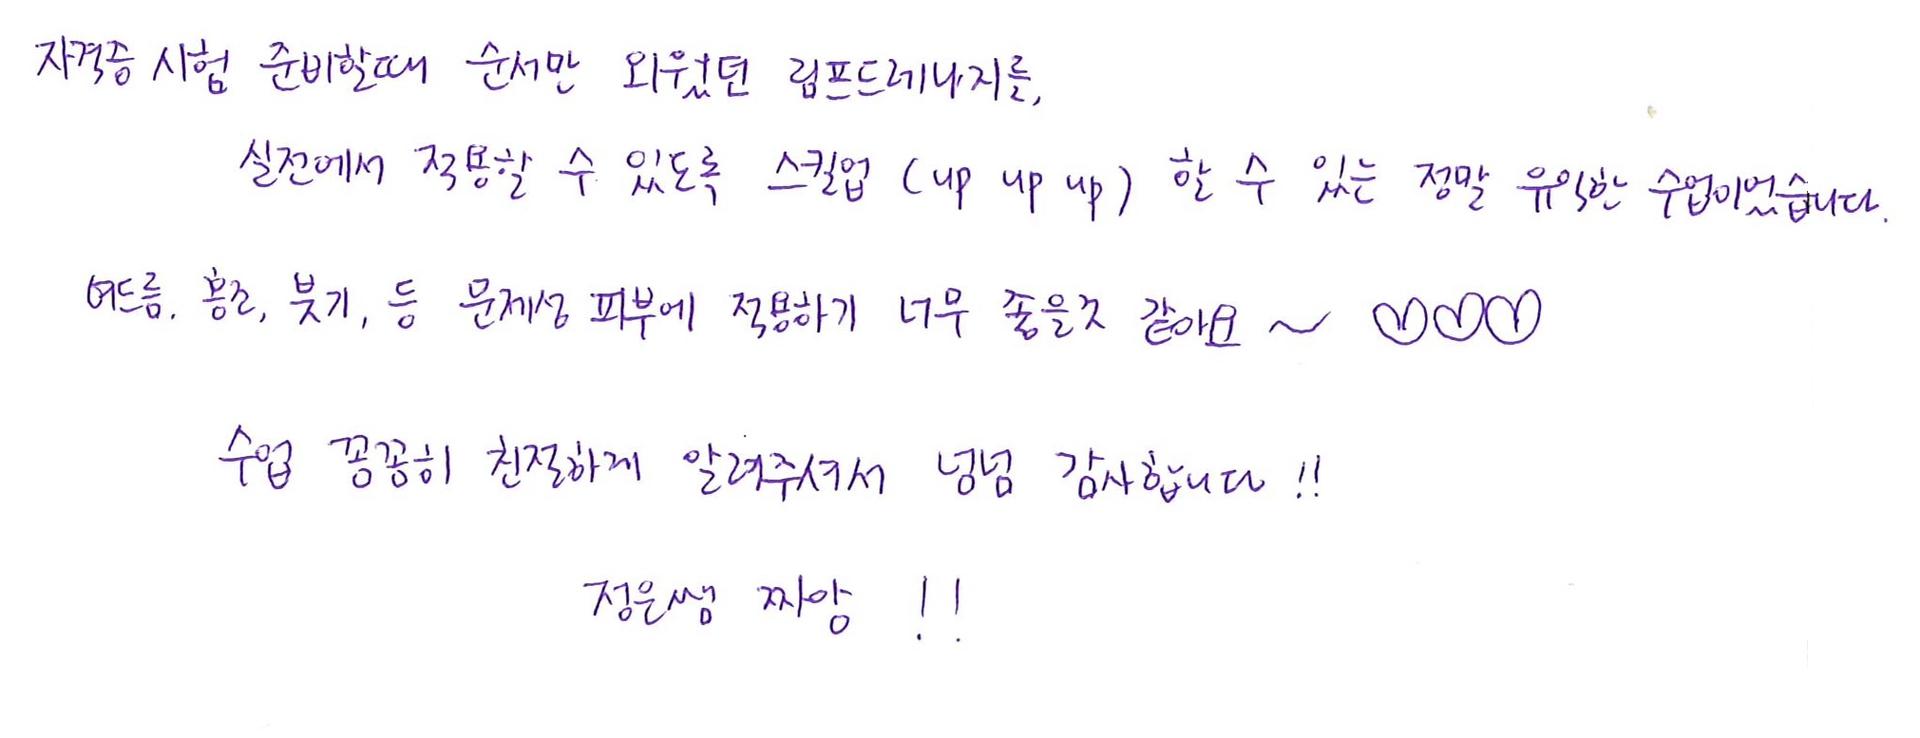 자격증 시험 준비할때 순서만 외웠던 림프드레나지를,
실전에서 적용할 수 있도록 스킬업 (up up up) 할 수 있는 정말 유익한 수업이었습니다.
여드름. 홍조, 붓기, 등 문제성 피부에 적용하기 너무 좋을것 같아요 ~ ♡♡♡
수업 꼼꼼히 친절하게 알려주셔서 넘넘 감사합니다 !!
정은쌤 짜앙 !!